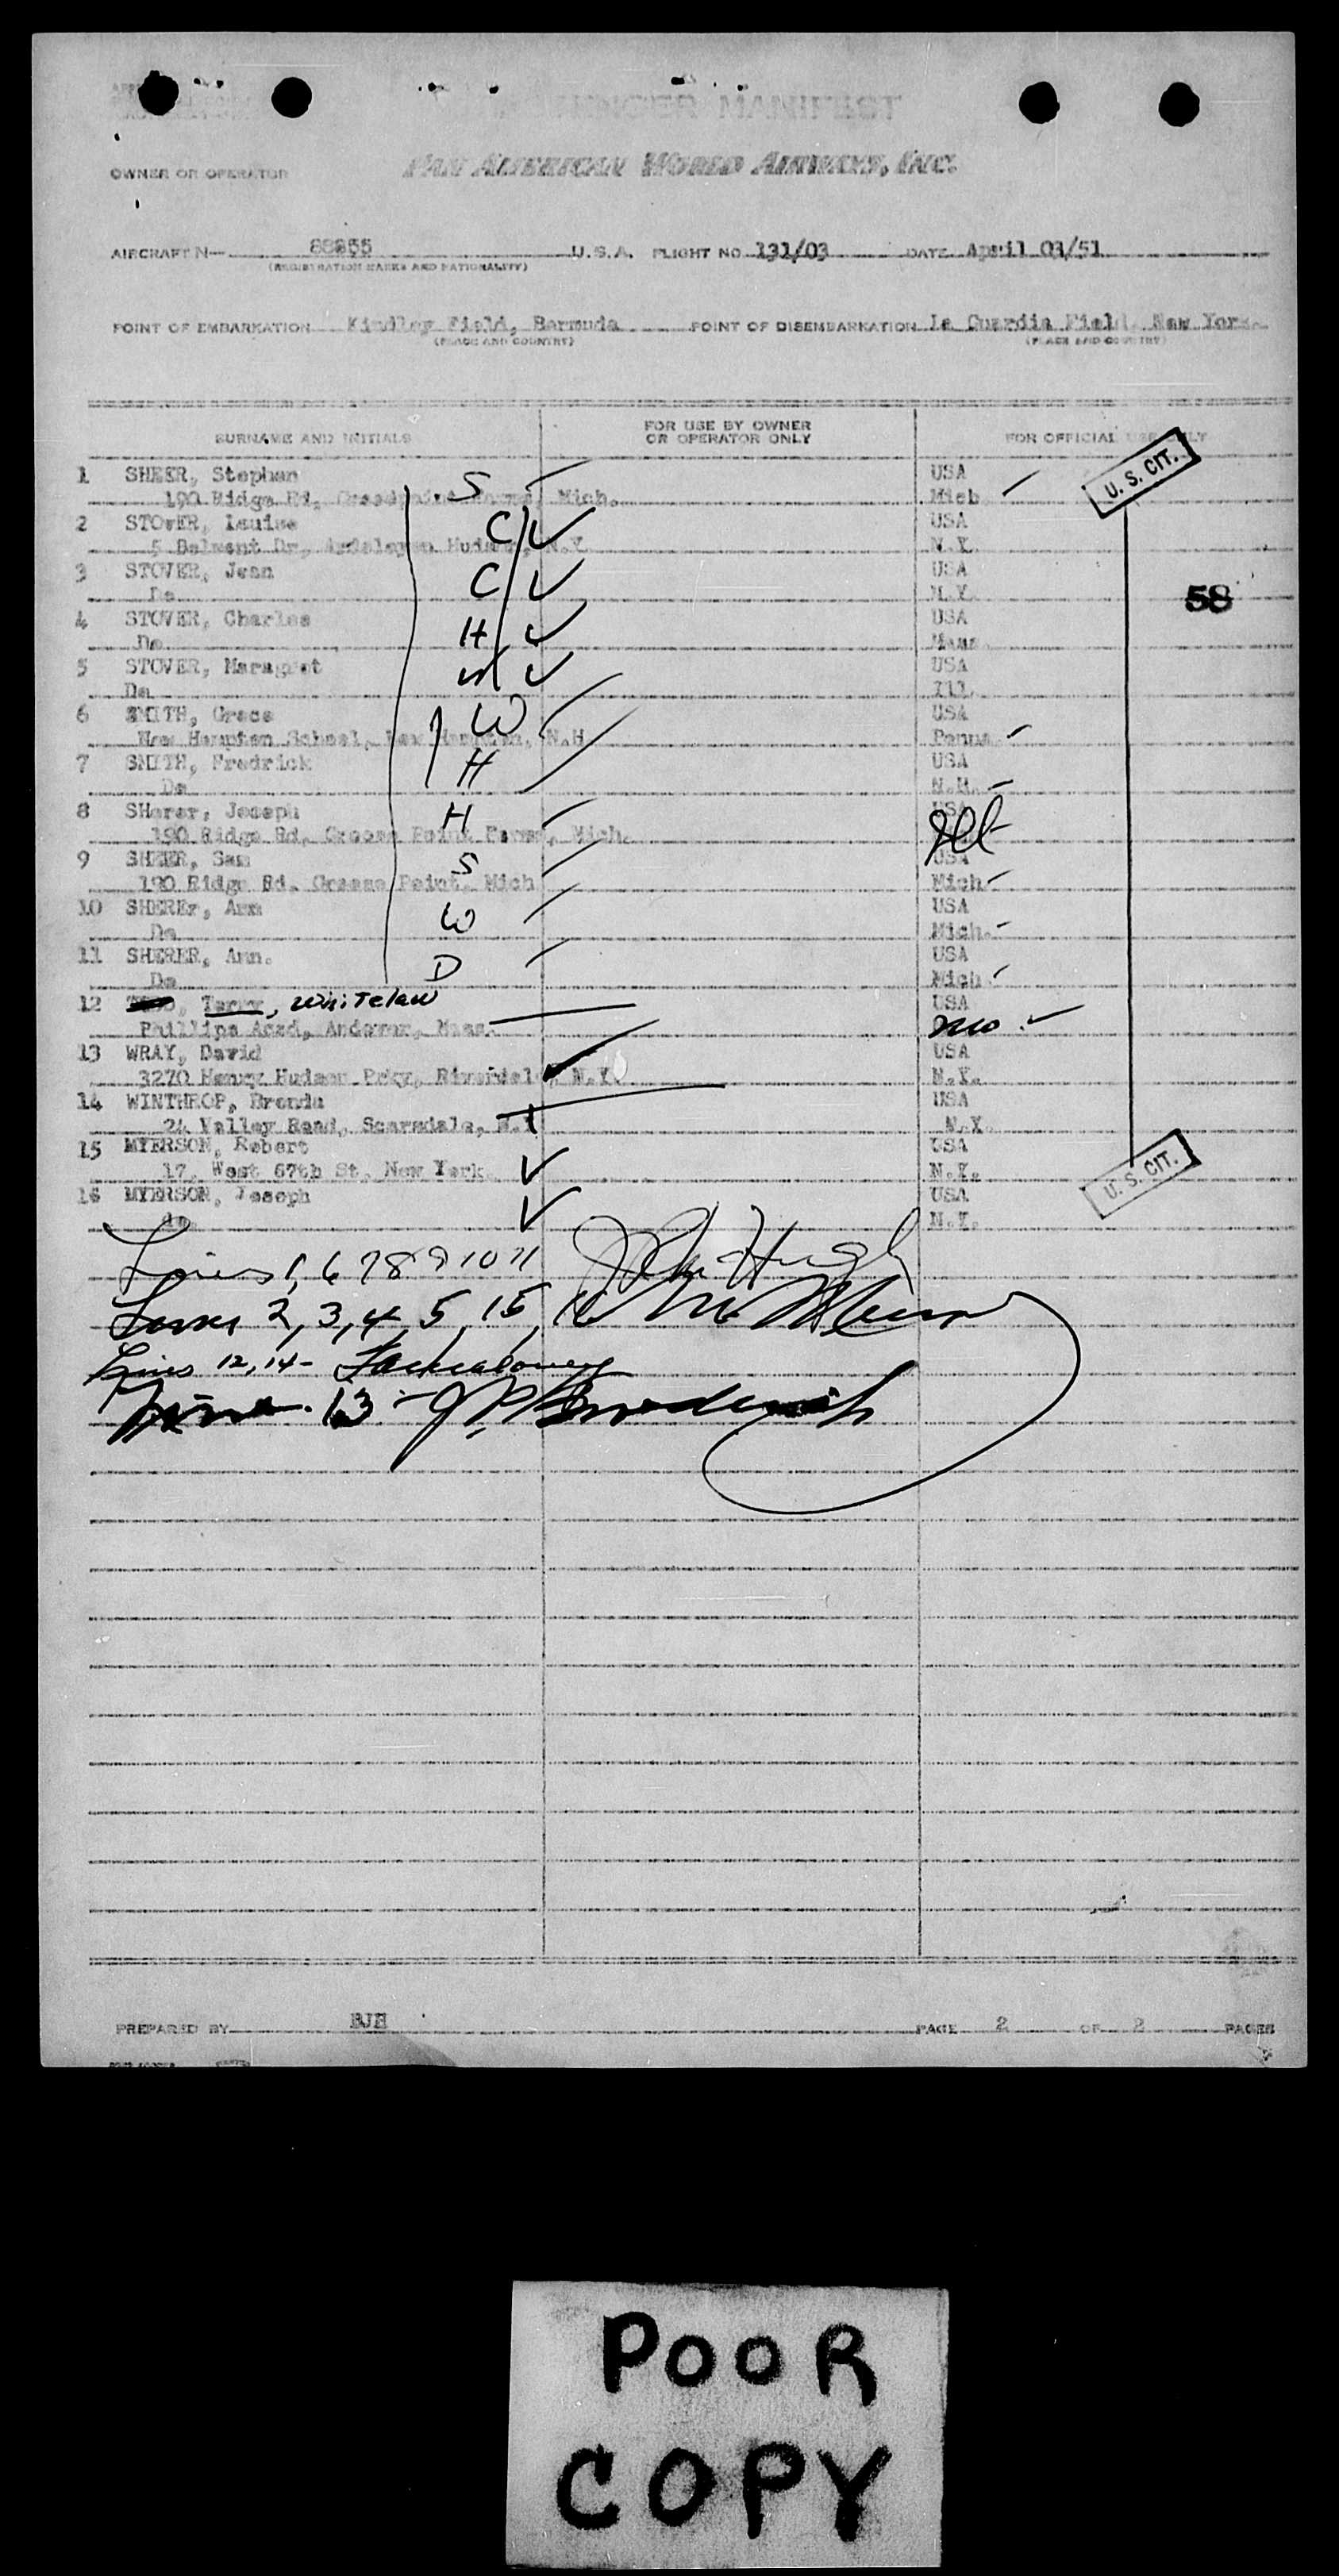 PASSENGER MANIFEST
OWNER OR OPERATOR PAN AMERICAN WORLD AIRWAYS, INC.
AIRCRAFT N— 88855 U.S.A. FLIGHT NO. 131/03 DATE April 03/51
(REGISTRATION MARKS AND NATIONALITY)
POINT OF EMBARKATION Kindley Field, Bermuda POINT OF DISEMBARKATION La Guardia Field, New York
(PLACE AND COUNTRY) (PLACE AND COUNTRY)
SURNAME AND INITIALS FOR USE BY OWNER OR OPERATOR ONLY FOR OFFICIAL USE ONLY
1 SHEER, Stephan S USA U. S. CIT.
190 Ridge Rd, Mich. Mich
2 STOVER, Louise C USA
5 Belmont Dr, Hudson, N.Y. N.Y.
3 STOVER, Jean C USA
Do N.Y. 58
4 STOVER, Charles H USA
Do Mass
5 STOVER, Maragret W USA
Do Ill.
6 SMITH, Grace W USA
New Hampton School, New Hampton, N.H. Penna.
7 SMITH, Fredrick H USA
Do N.H.
8 SHerer, Joseph H USA
190 Ridge Rd, Grosse Point Farms, Mich.
9 SHEER, Sam S USA
190 Ridge Rd. Grosse Point, Mich Mich.
10 SHERER, Ann W USA
Do Mich.
11 SHERER, Ann. D USA
Do Mich
12 Terry, Whitelaw USA
Phillips Acad, Andover, Mass. Mo.
13 WRAY, David USA
3270 Henry Hudson Prky, Riverdale, N.Y. N.Y.
14 WINTHROP, Brenda USA
24 Valley Road, Scarsdale, N.Y N.Y.
15 MYERSON, Robert USA
17, West 67th St, New York N.Y. U. S. CIT.
16 MYERSON, Joseph USA
do N.Y.
Lines 1, 6 7 8 9 10 11 John Hugh
Lines 2, 3, 4, 5, 15, 16
Lines 12, 14 -
Line 13 - J.P.
PREPARED BY BJH PAGE 2 OF 2 PAGES
POOR
COPY